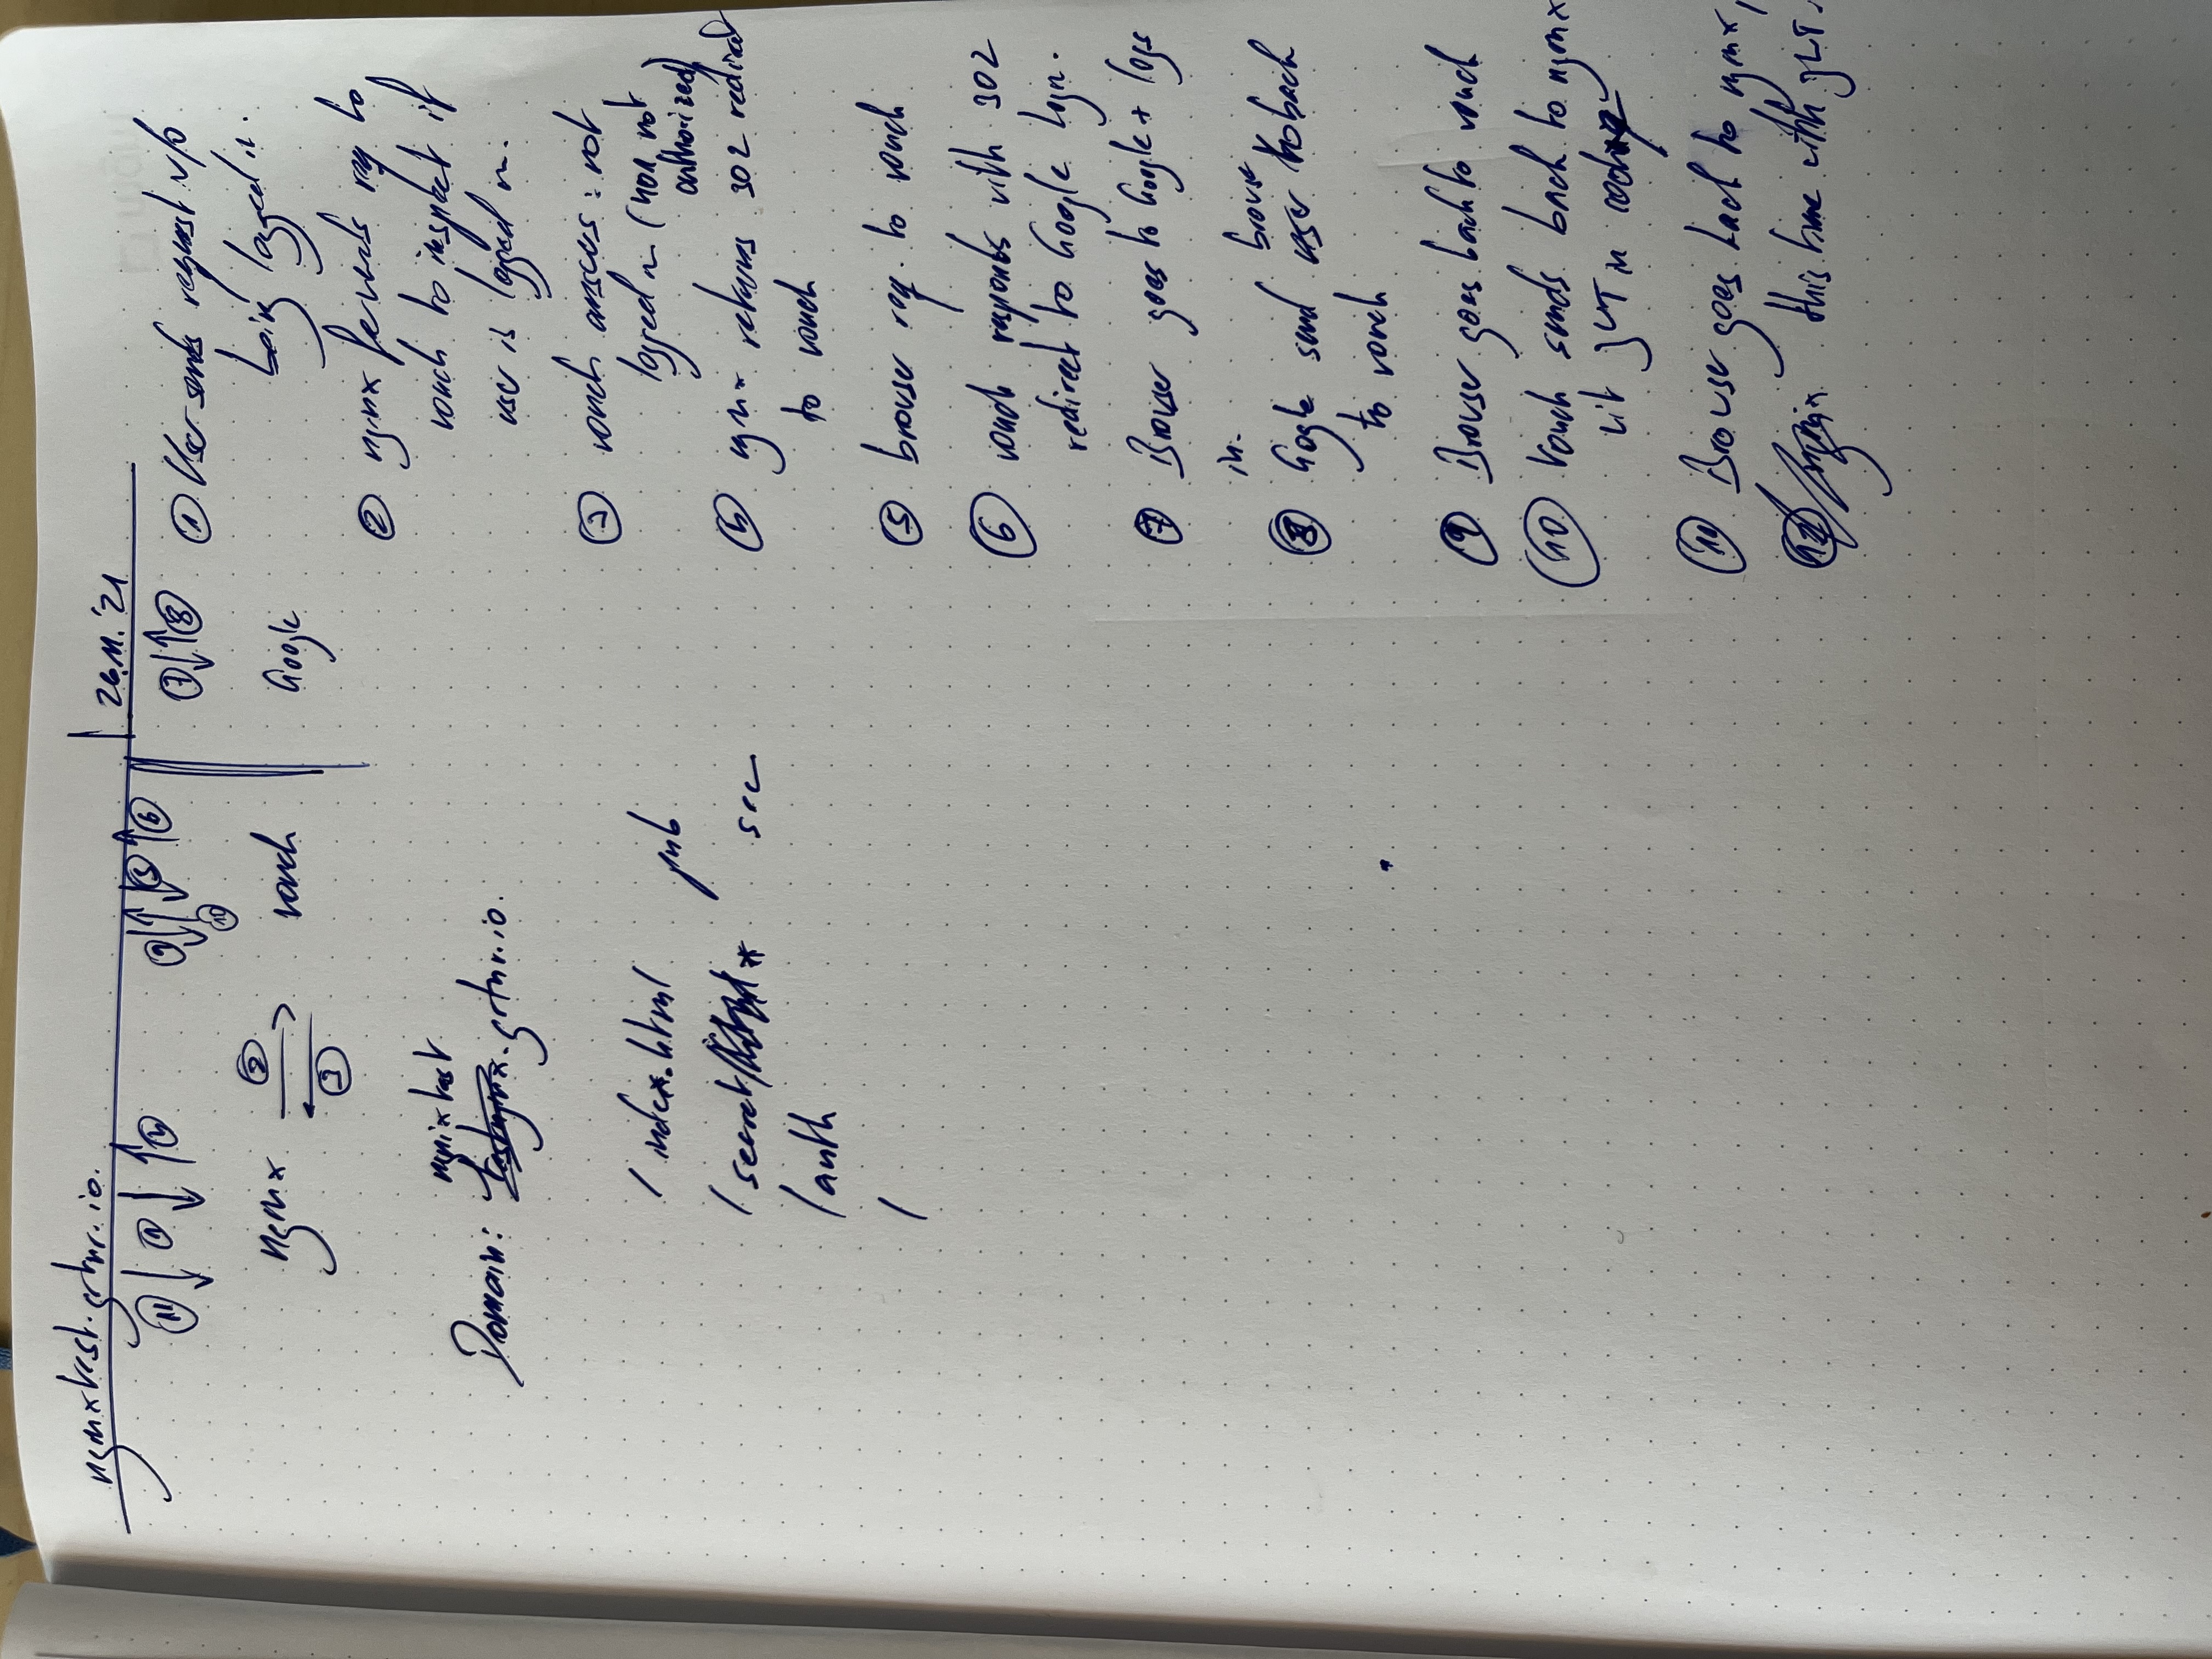 nginxtest.grtnr.io.
26.11.'21
11 1 4 9 10 5 6 7 8
nginx 2 vouch Google
3
nginxtest
Domain: testnginx.grtnr.io.
/index.html pub
/secret/ * sec
/auth
/
1 User sends request w/o
being logged in.
2 nginx forwards req to
vouch to inspect if
user is logged in.
3 vouch answers: not
logged in (401 not
authorized)
4 nginx returns 302 redirect
to vouch
5 browser req. to vouch
6 vouch responds with 302
redirect to Google Login.
7 Browser goes to Google + logs
in.
browser
8 Google send user back
to vouch
9 Browser goes back to vouch
10 Vouch sends back to nginx
wit JWT in
11 Browser goes back to nginx,
12 nginx this time with JWT.